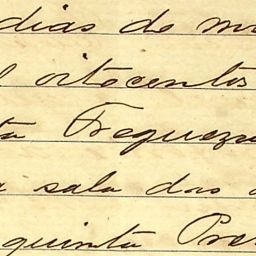 dias do m
oitocentos
ta Freguezia
sala das
quinta Pre